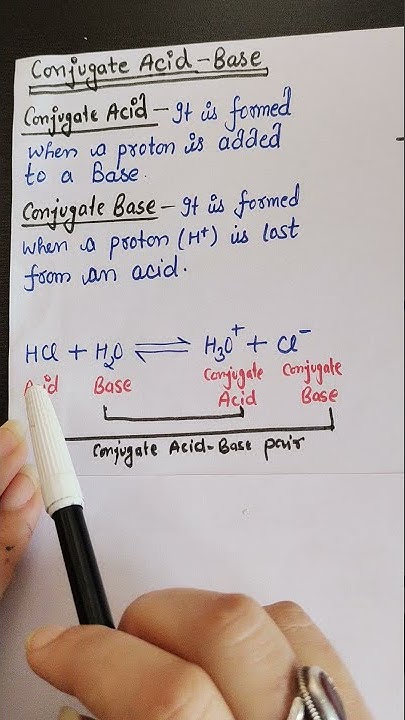 Conjugate Acid-Base
Conjugate Acid - It is formed
when a proton is added
to a Base.
Conjugate Base - It is formed
when a proton (H⁺) is lost
from an acid.
HCl + H₂O ⇌ H₃O⁺ + Cl⁻
Acid Base Conjugate Acid Conjugate Base
Conjugate Acid-Base pair